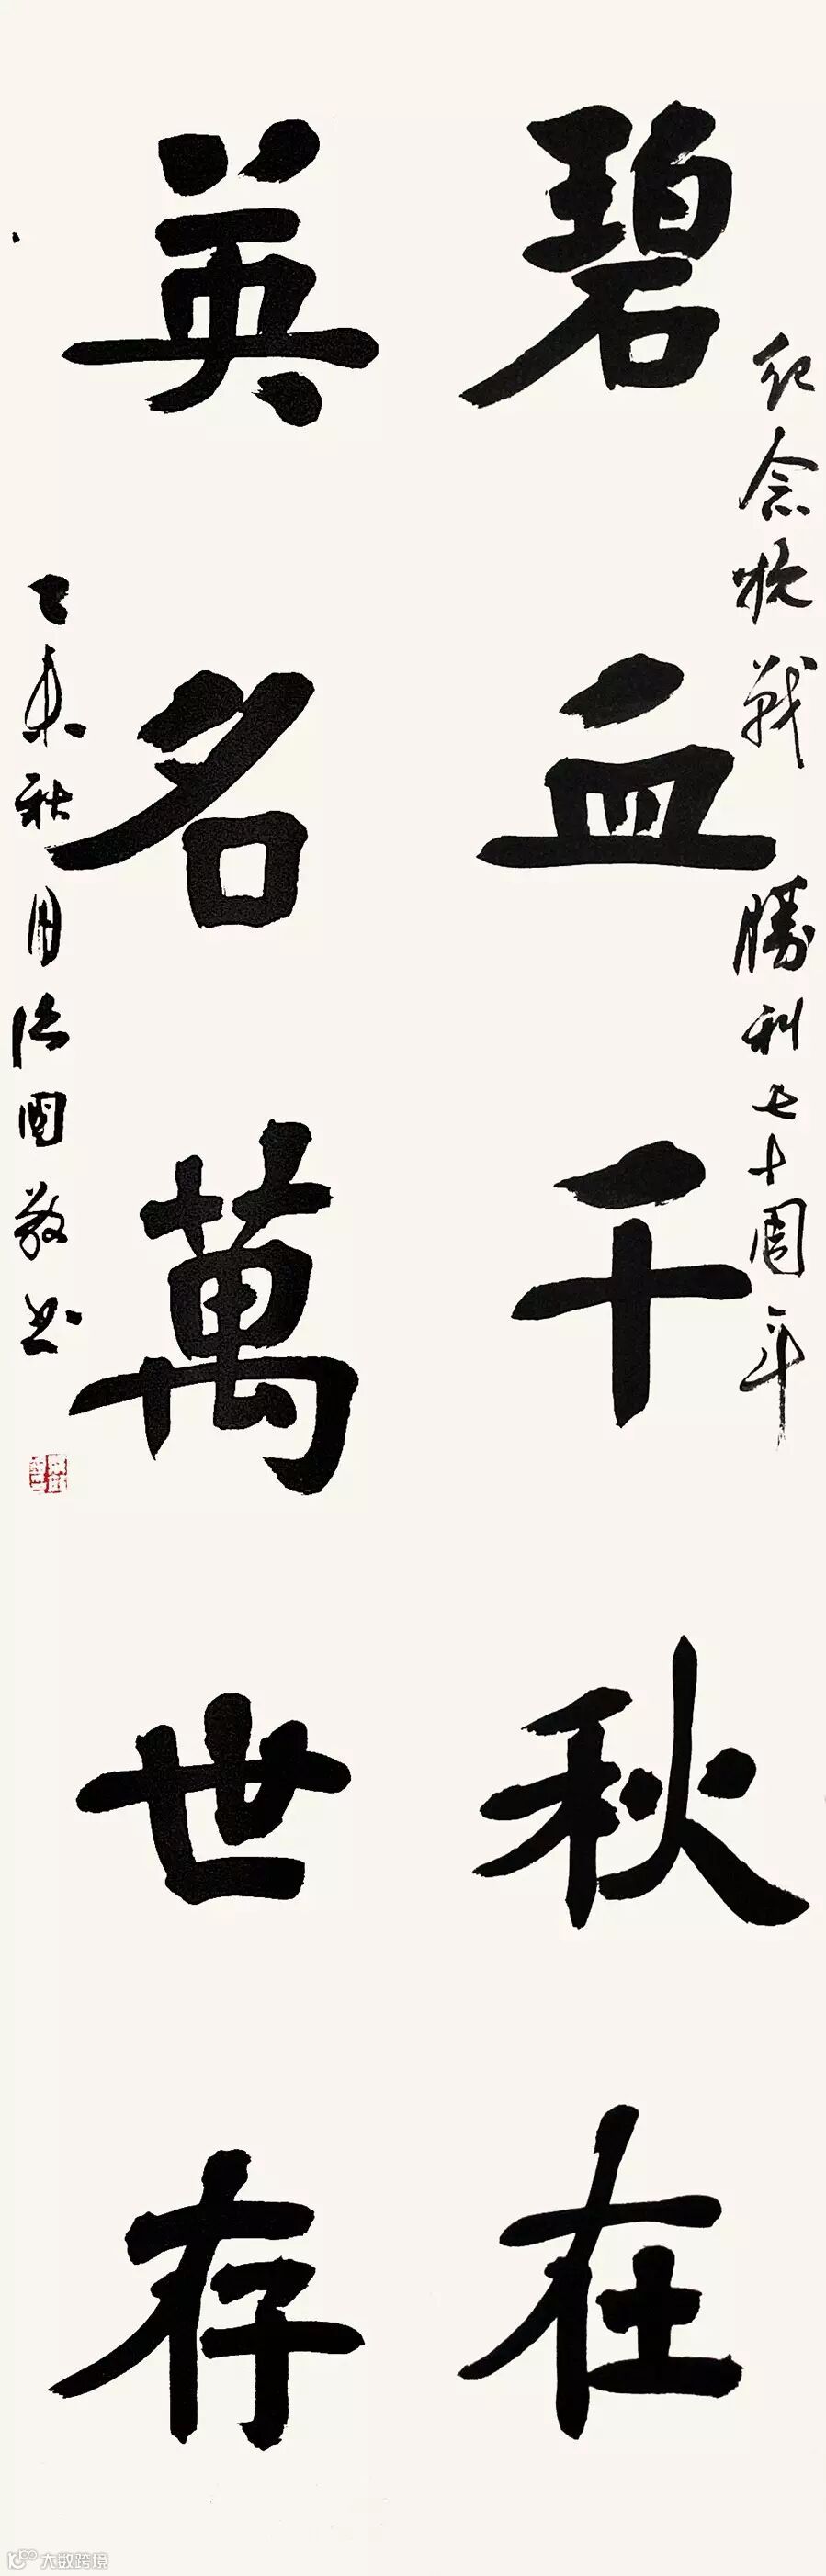 紀念抗戰勝利七十周年
碧血千秋在
英名萬世存
乙未秋月法國敬書
大数跨境